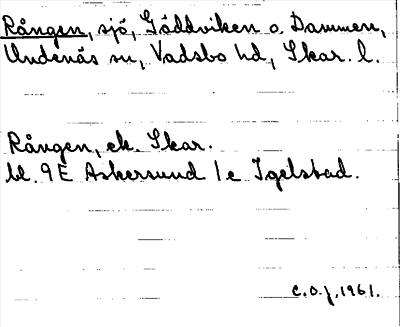 Rången, sjö, Gäddviken o. Dammen,
Undenäs sn, Vadsbo hd, Skar. l.
Rången, ek. Skar.
bl. 9E Askersund 1e Igelstad.
C.O.J. 1961.